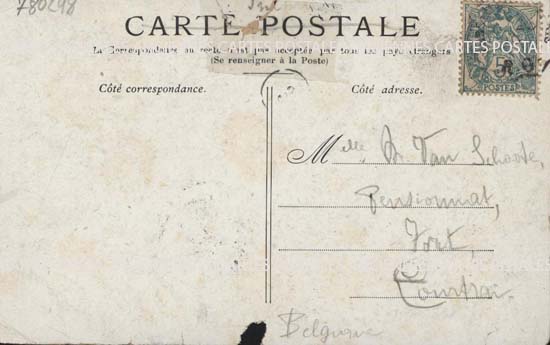 780298
CARTE POSTALE
La Correspondance au recto n'est pas acceptée par tous les pays étrangers
(Se renseigner à la Poste)
CARTES POSTAL
5
POSTES
Côté correspondance.
Côté adresse.
Melle Van Schoote,
Pensionnat,
Fort,
Courtrai.
Belgique